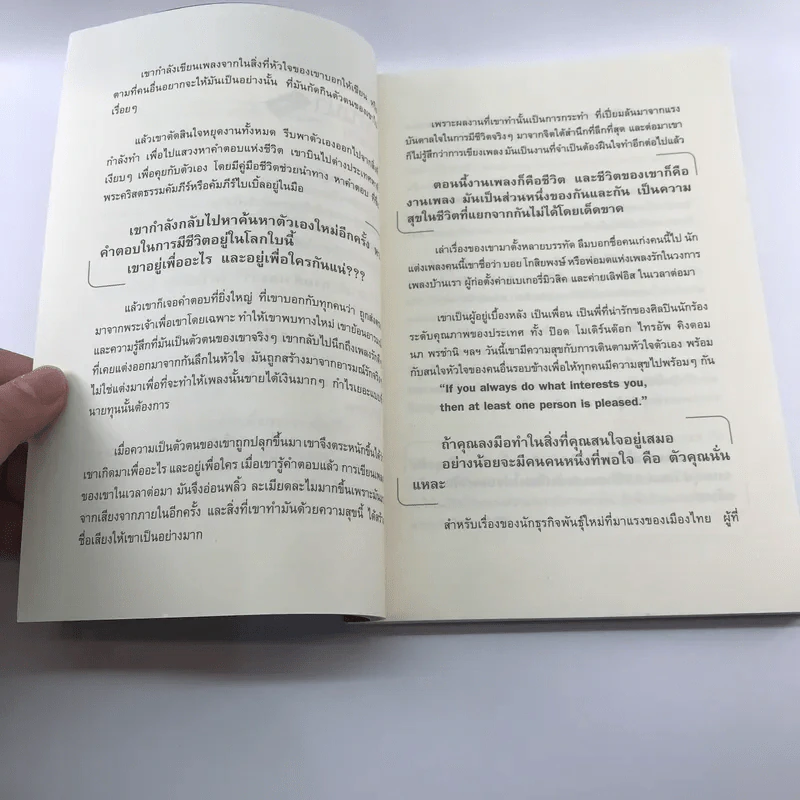 เขากำลังเขียนเพลงจากในสิ่งที่หัวใจของเขาบอกให้เขียน
ตามที่คนอื่นอยากจะให้มันเป็นอย่างนั้น ที่มันกัดกินตัวตนของเขา
เรื่อยๆ
แล้วเขาตัดสินใจหยุดงานทั้งหมด รีบพาตัวเองออกไปจาก
กำลังทำ เพื่อไปแสวงหาคำตอบแห่งชีวิต เขาบินไปต่างประเทศ
เงียบๆ เพื่อคุยกับตัวเอง โดยมีคู่มือชีวิตช่วยนำทาง หาคำตอบ
พระคริสตธรรมคัมภีร์หรือคัมภีร์ไบเบิ้ลอยู่ในมือ
เขากำลังกลับไปหาค้นหาตัวเองใหม่อีกครั้ง
คำตอบในการมีชีวิตอยู่ในโลกใบนี้
เขาอยู่เพื่ออะไร และอยู่เพื่อใครกันแน่???
แล้วเขาก็เจอคำตอบที่ยิ่งใหญ่ ที่เขาบอกกับทุกคนว่า ถูกส่งตรง
มาจากพระเจ้าเพื่อเขาโดยเฉพาะ ทำให้เขาพบทางใหม่ เขาย้อน
และความรู้สึกที่มันเป็นตัวตนของเขาจริงๆ เขากลับไปนึกถึงเพลงรัก
ที่เคยแต่งออกมาจากก้นลึกในหัวใจ มันถูกสร้างมาจากอารมณ์รักจริงๆ
ไม่ใช่แต่งมาเพื่อที่จะทำให้เพลงนั้นขายได้เงินมากๆ กำไรเยอะ
นายทุนนั้นต้องการ
เมื่อความเป็นตัวตนของเขาถูกปลุกขึ้นมา เขาจึงตระหนักขึ้นได้
เขาเกิดมาเพื่ออะไร และอยู่เพื่อใคร เมื่อเขารู้คำตอบแล้ว การเขียนเพลง
ของเขาในเวลาต่อมา มันจึงอ่อนพลิ้ว ละเมียดละไมมากขึ้นเพราะมัน
จากเสียงจากภายในอีกครั้ง และสิ่งที่เขาทำมันด้วยความสุขนี้ ได้
ชื่อเสียงให้เขาเป็นอย่างมาก
เพราะผลงานที่เขาทำนั้นเป็นการกระทำ ที่เปี่ยมล้นมาจากแรง
บันดาลใจในการมีชีวิตจริงๆ มาจากจิตใต้สำนึกที่ลึกที่สุด และต่อมาเขา
ก็ไม่รู้สึกว่าการเขียงเพลง มันเป็นงานที่จำเป็นต้องฝืนใจทำอีกต่อไปแล้ว
ตอนนี้งานเพลงก็คือชีวิต และชีวิตของเขาก็คือ
งานเพลง มันเป็นส่วนหนึ่งของกันและกัน เป็นความ
สุขในชีวิตที่แยกจากกันไม่ได้โดยเด็ดขาด
เล่าเรื่องของเขามาตั้งหลายบรรทัด ลืมบอกชื่อคนเก่งคนนี้ไป นัก
แต่งเพลงคนนี้เขาชื่อว่า บอย โกสิยพงษ์ หรือพ่อมดแห่งเพลงรักในวงการ
เพลงบ้านเรา ผู้ก่อตั้งค่ายเบเกอรี่มิวสิค และค่ายเลิฟอีส ในเวลาต่อมา
เขาเป็นผู้อยู่เบื้องหลัง เป็นเพื่อน เป็นพี่ที่น่ารักของศิลปินนักร้อง
ระดับคุณภาพของประเทศ ทั้ง ป๊อด โมเดิร์นด๊อก ไทรอัพ คิงตอม
นภ พรชำนิ ฯลฯ วันนี้เขามีความสุขกับการเดินตามหัวใจตัวเอง พร้อมๆ
กับสนใจหัวใจของคนอื่นรอบข้างเพื่อให้ทุกคนมีความสุขไปพร้อมๆ กัน
“If you always do what interests you,
then at least one person is pleased.”
ถ้าคุณลงมือทำในสิ่งที่คุณสนใจอยู่เสมอ
อย่างน้อยจะมีคนคนหนึ่งที่พอใจ คือ ตัวคุณนั่น
แหละ
สำหรับเรื่องของนักธุรกิจพันธุ์ใหม่ที่มาแรงของเมืองไทย ผู้ที่